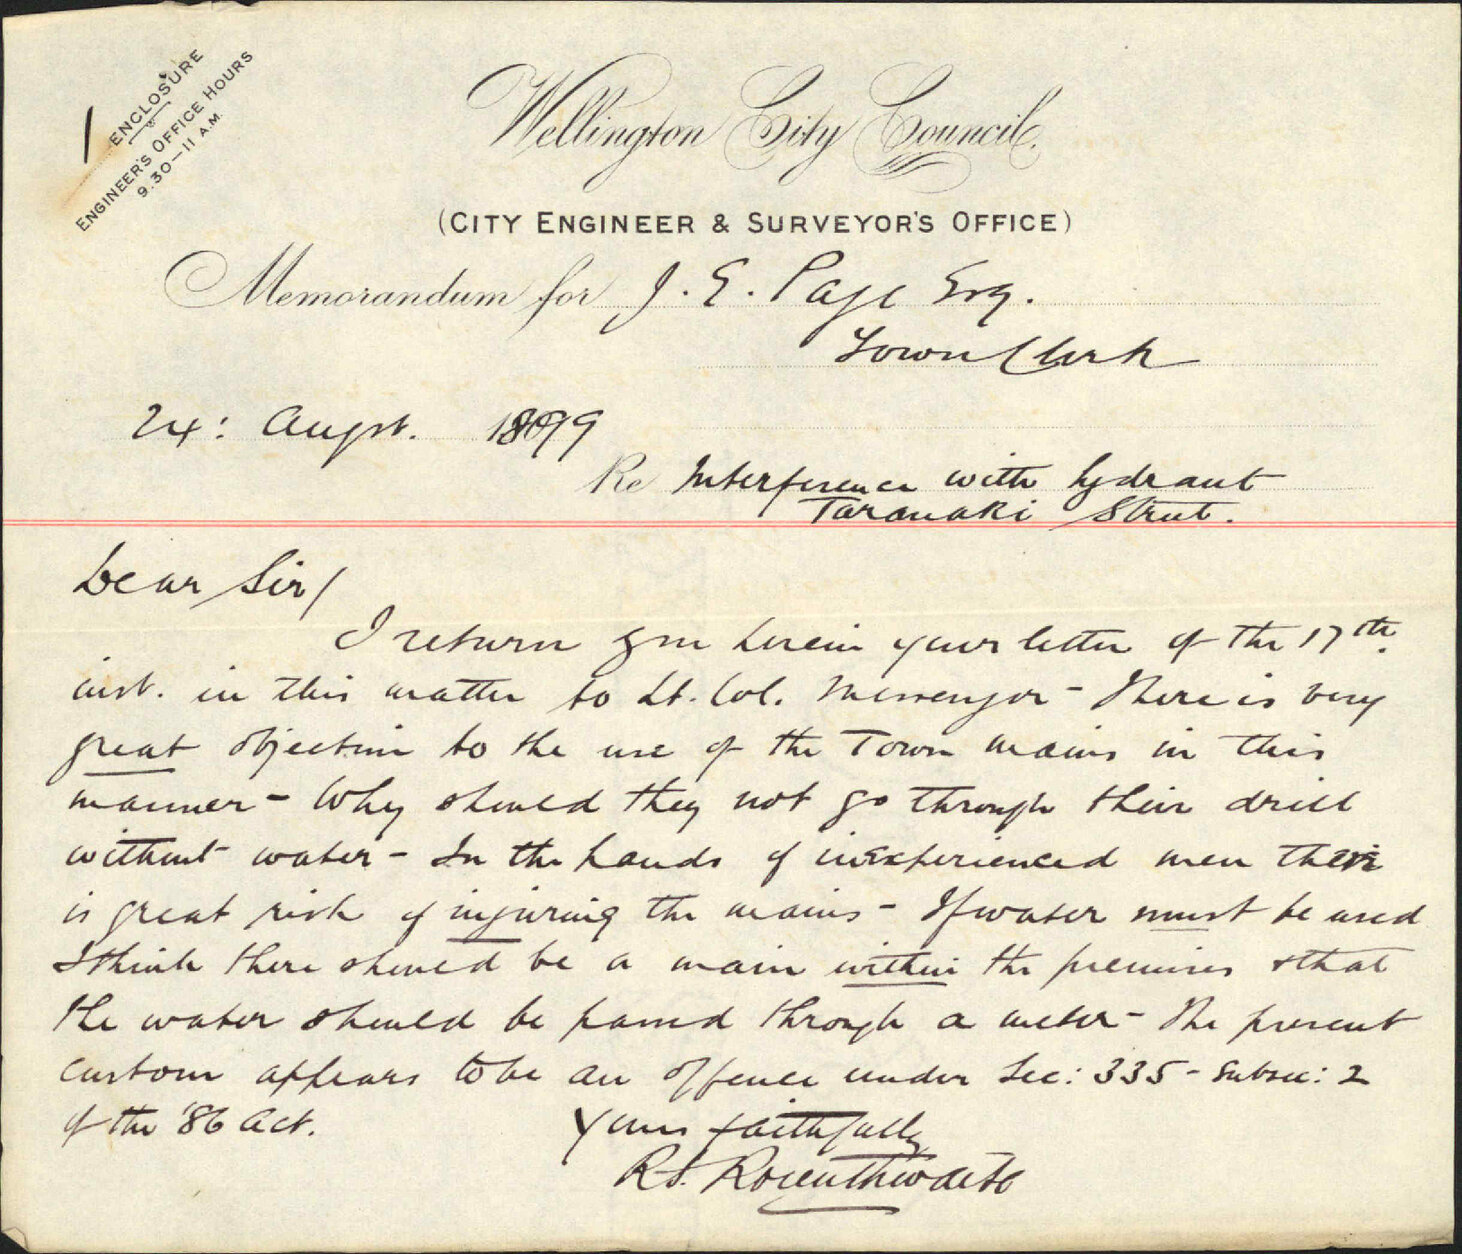 1 ENCLOSURE
ENGINEER'S OFFICE HOURS
9.30—11 A.M
Wellington City Council.
(CITY ENGINEER & SURVEYOR'S OFFICE)
Memorandum for J. E. Page Esq.
Town Clerk
24: Augst. 1899
Re Interference with hydrant
Taranaki Street.
Dear Sir/
I return you herein your letter of the 17th.
inst. in this matter to Lt. Col. Messenger - There is very
great objection to the use of the Town mains in this
manner - Why should they not go through their drill
without water - In the hands of inexperienced men there
is great risk of injuring the mains - If water must be used
I think there should be a main within the premises & that
the water should be passed through a meter - The present
custom appears to be an offence under Sec: 335 - Subsec: 2
of the '86 Act.
Yours faithfully
R.S. Rounthwaite